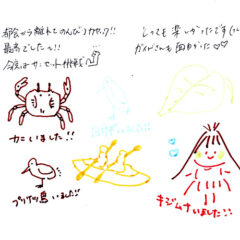 都会から離れてのんびりカヤック!!
最高でした〜!!
今度はサンセット
とっても楽しかったです
ガイドさんも面白かった♡♡
カニいました!!
いました!!
キジムナいました!!